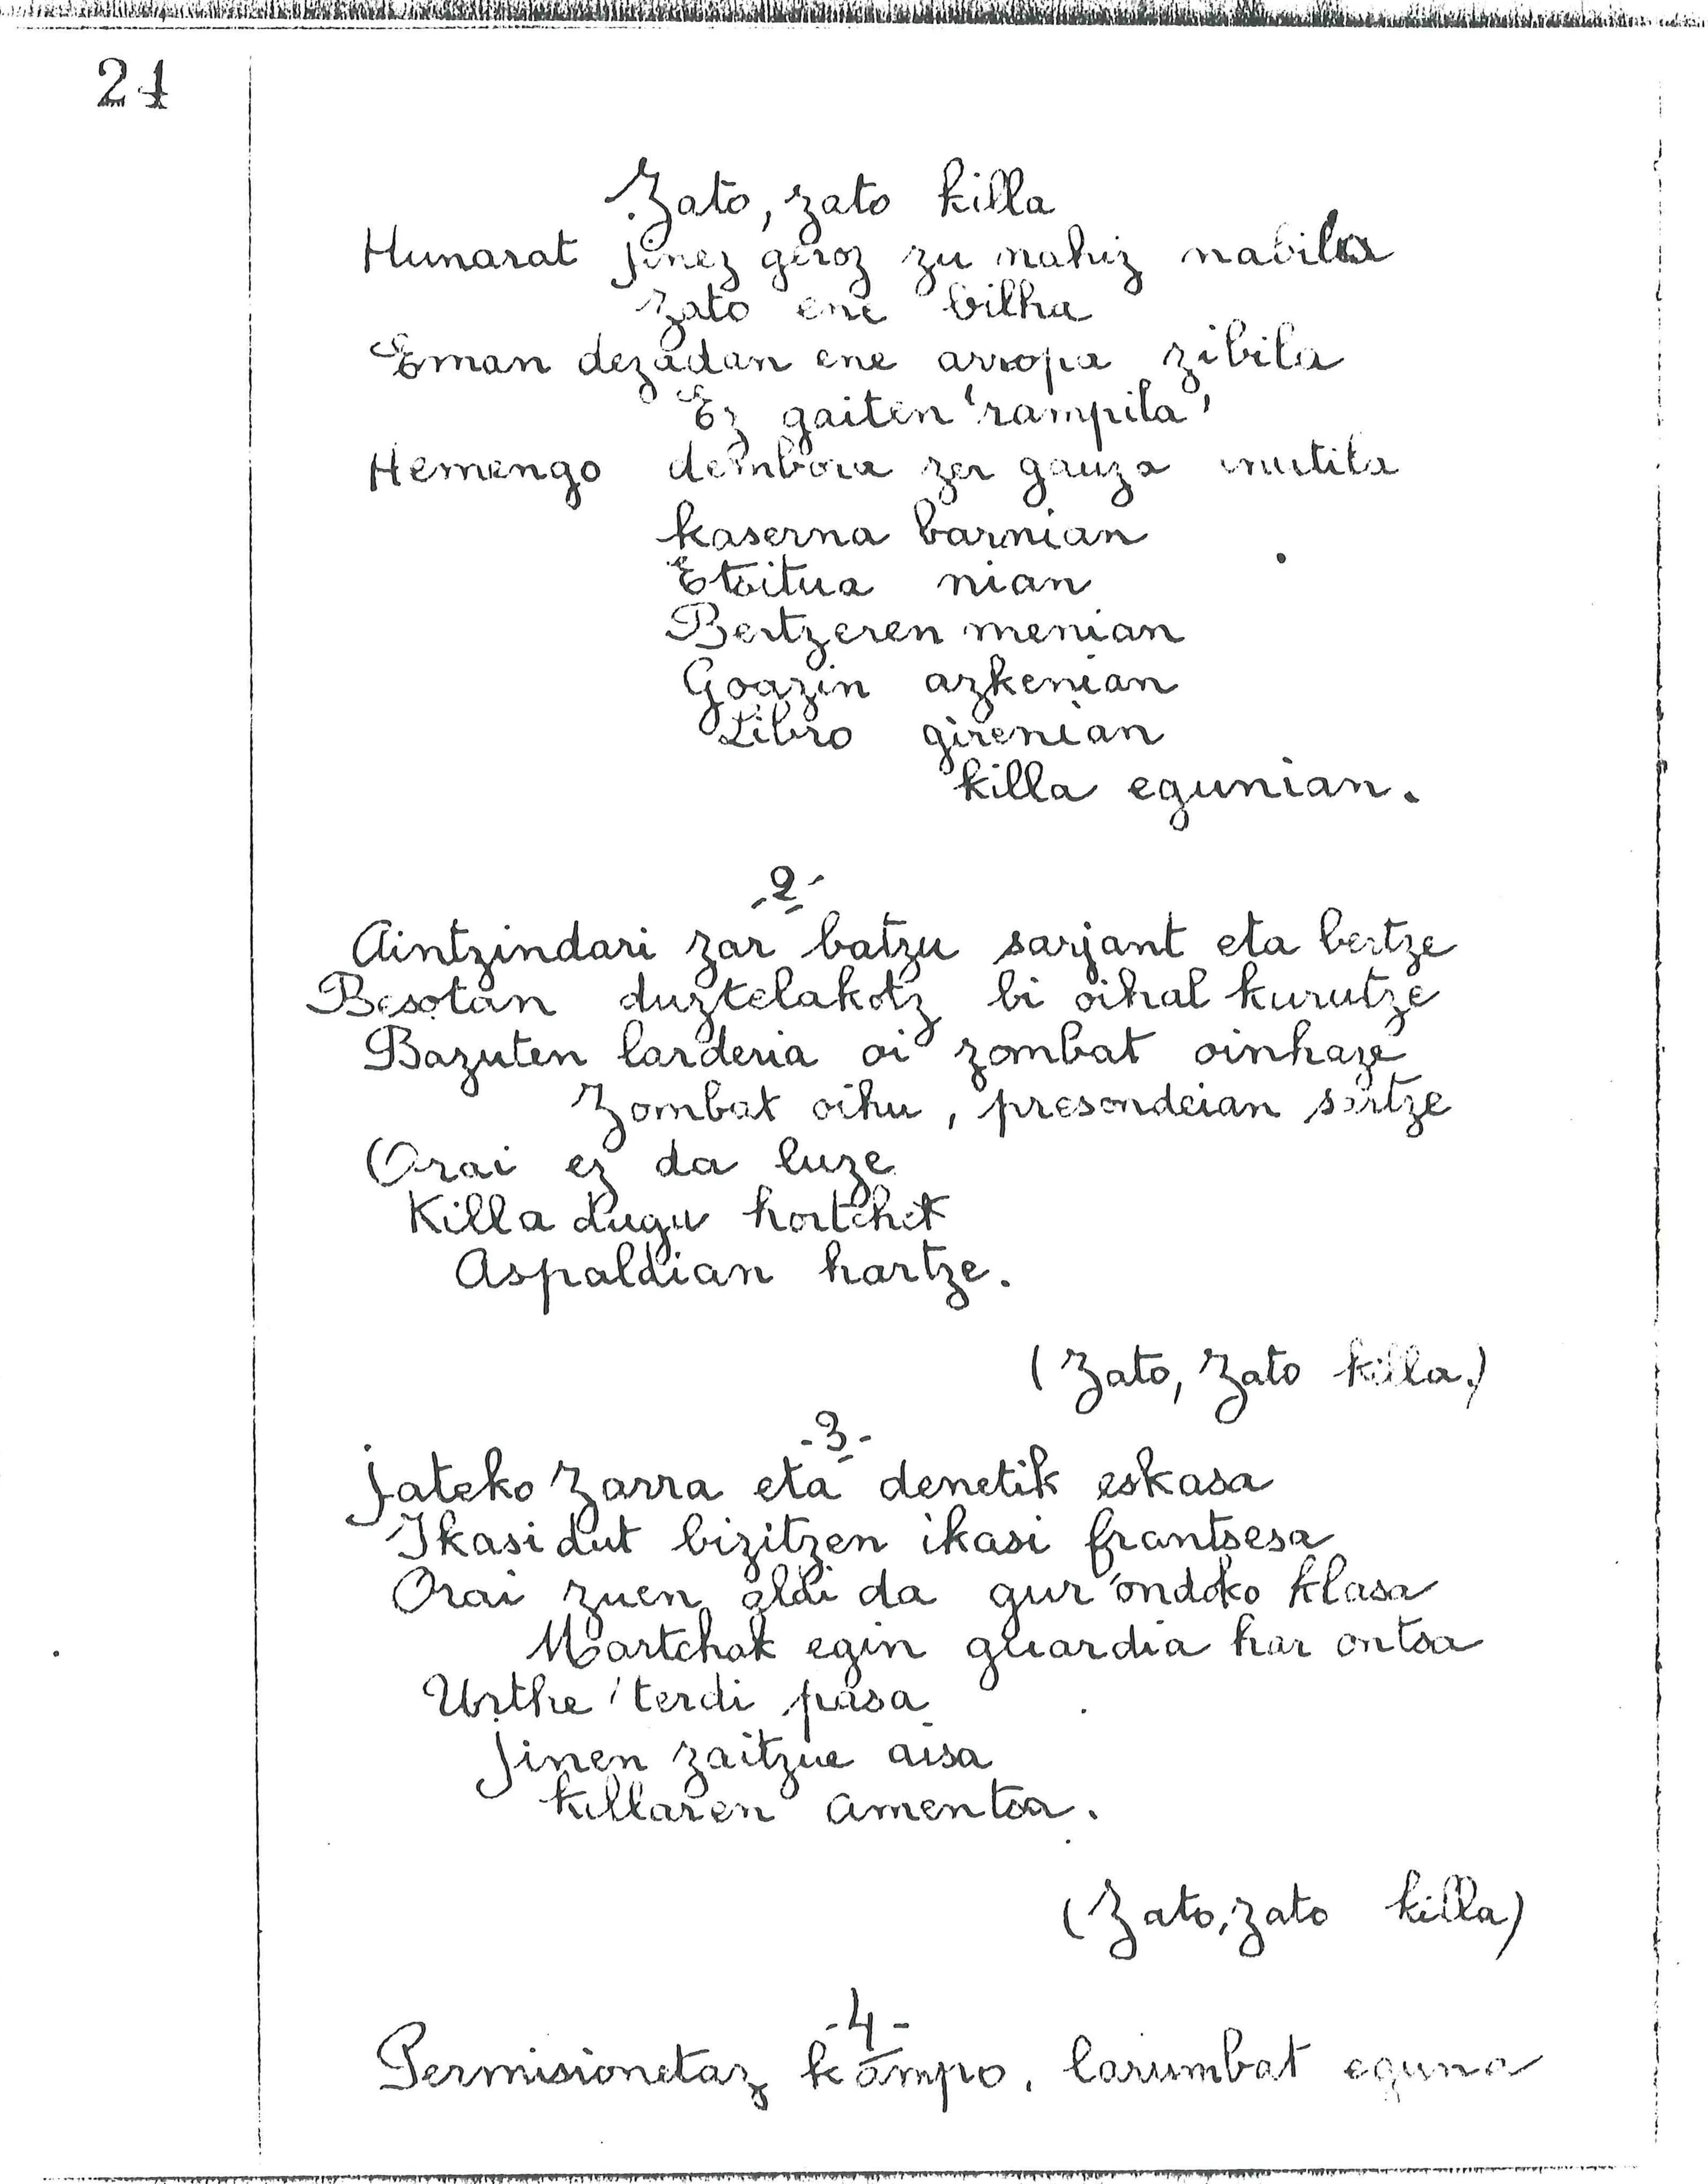 24
Zato, zato killa
Hunarat jinez geroz zu nahiz nabila
Zato ene bilha
Eman dezadan ene arropa zibila
Ez gaiten 'rampila'
Hemengo dembora zer gauza inutila
kaserna barnian
Etsitua nian
Bertzeren menian
Goazin azkenian
Libro girenian
killa egunian.
-2-
Aintzindari zar batzu sarjant eta bertze
Besotan duztelakotz bi oihal kurutze
Bazuten larderia oi zombat oinhaze
Zombat oihu, presondeian sartze
Orai ez da luze
Killa dugu hortchet
Aspaldian hartze.
(Zato, Zato killa.)
-3-
Jateko Zarra eta denetik eskasa
Ikasi dut bizitzen ikasi frantsesa
Orai zuen aldi da gur'ondoko klasa
Martchak egin guardia har ontsa
Urthe 'terdi pasa
Jinen zaitzue aisa
killaren amentsa.
(Zato, zato killa)
-4-
Permisionetaz kampo, larumbat eguna